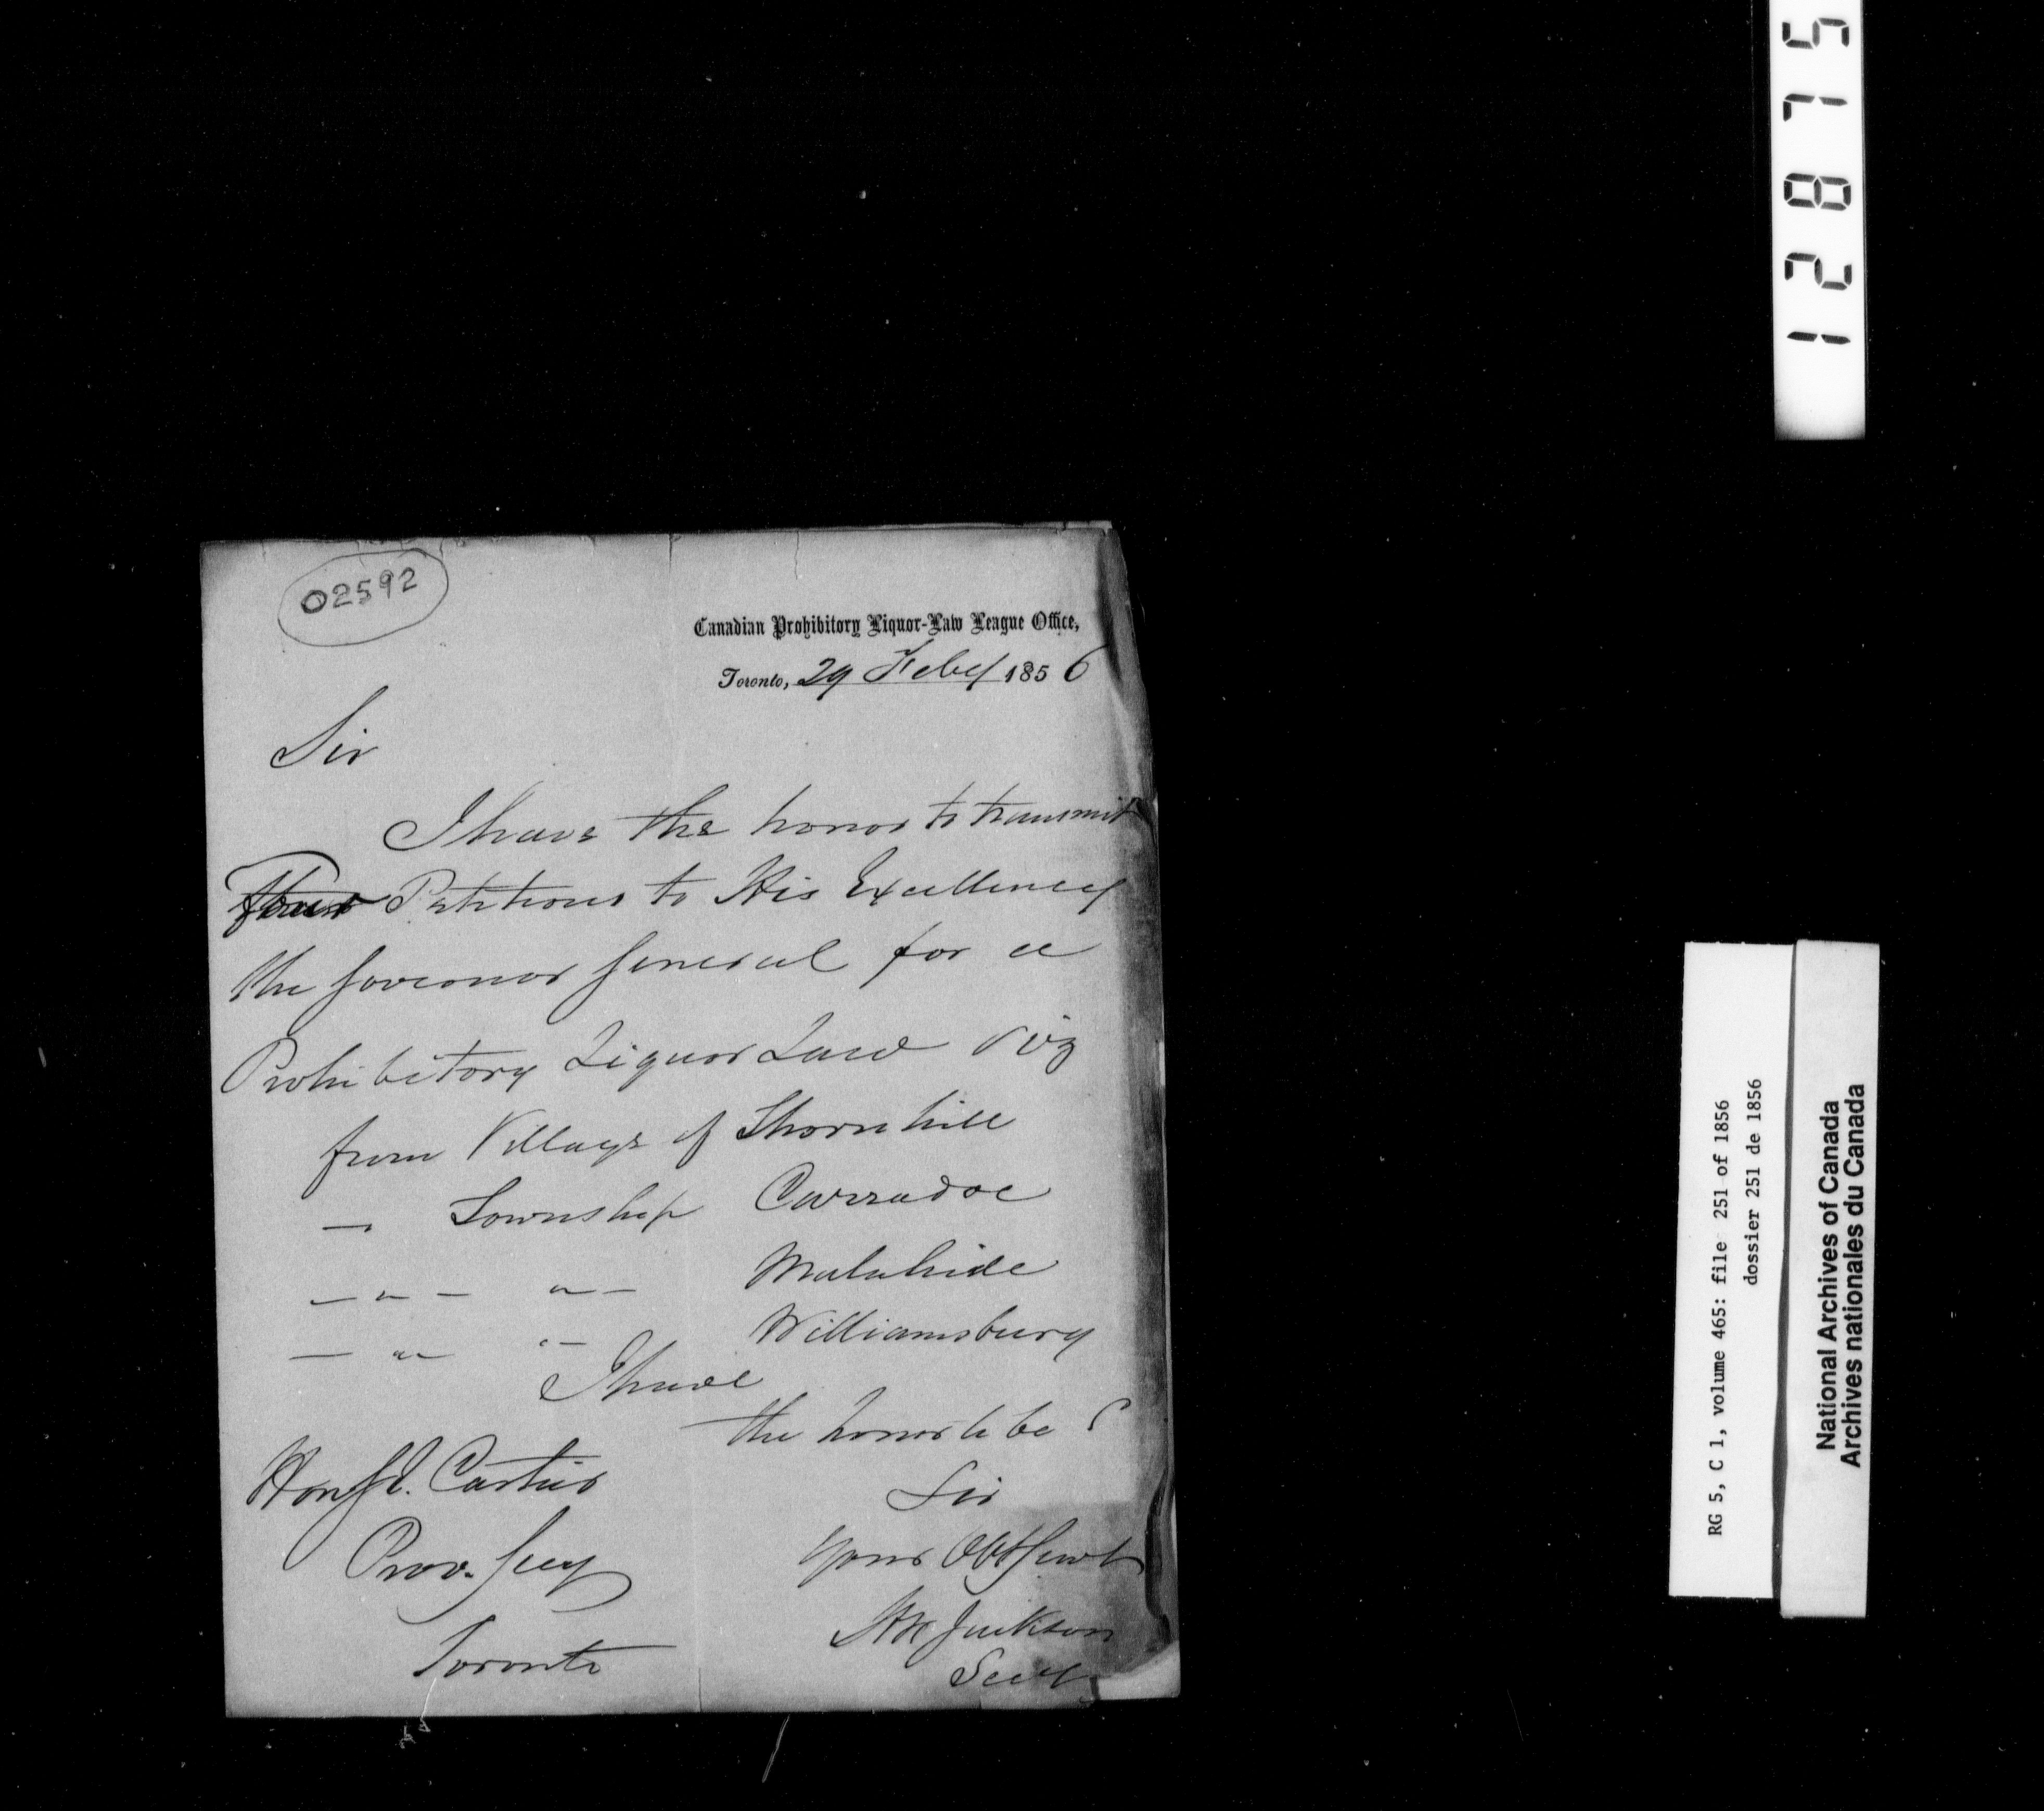 12875
02592
Canadian Prohibitory Liquor-Law League Office,
Toronto, 29 Feby 1856
Sir
I have the honor to transmit
four Petitions to His Excellency
the Governor General for a
Prohibitory Liquor Law viz
from Village of Thornhill
— Township Carradoc
— " — " — Malahide
— " — " — Williamsburg
I have
the honor to be
Sir
Your Obt Servt
Jackson
Secty
Hon G. E. Cartier
Prov. Secy
Toronto
RG 5, C 1, volume 465: file 251 of 1856
dossier 251 de 1856
National Archives of Canada
Archives nationales du Canada